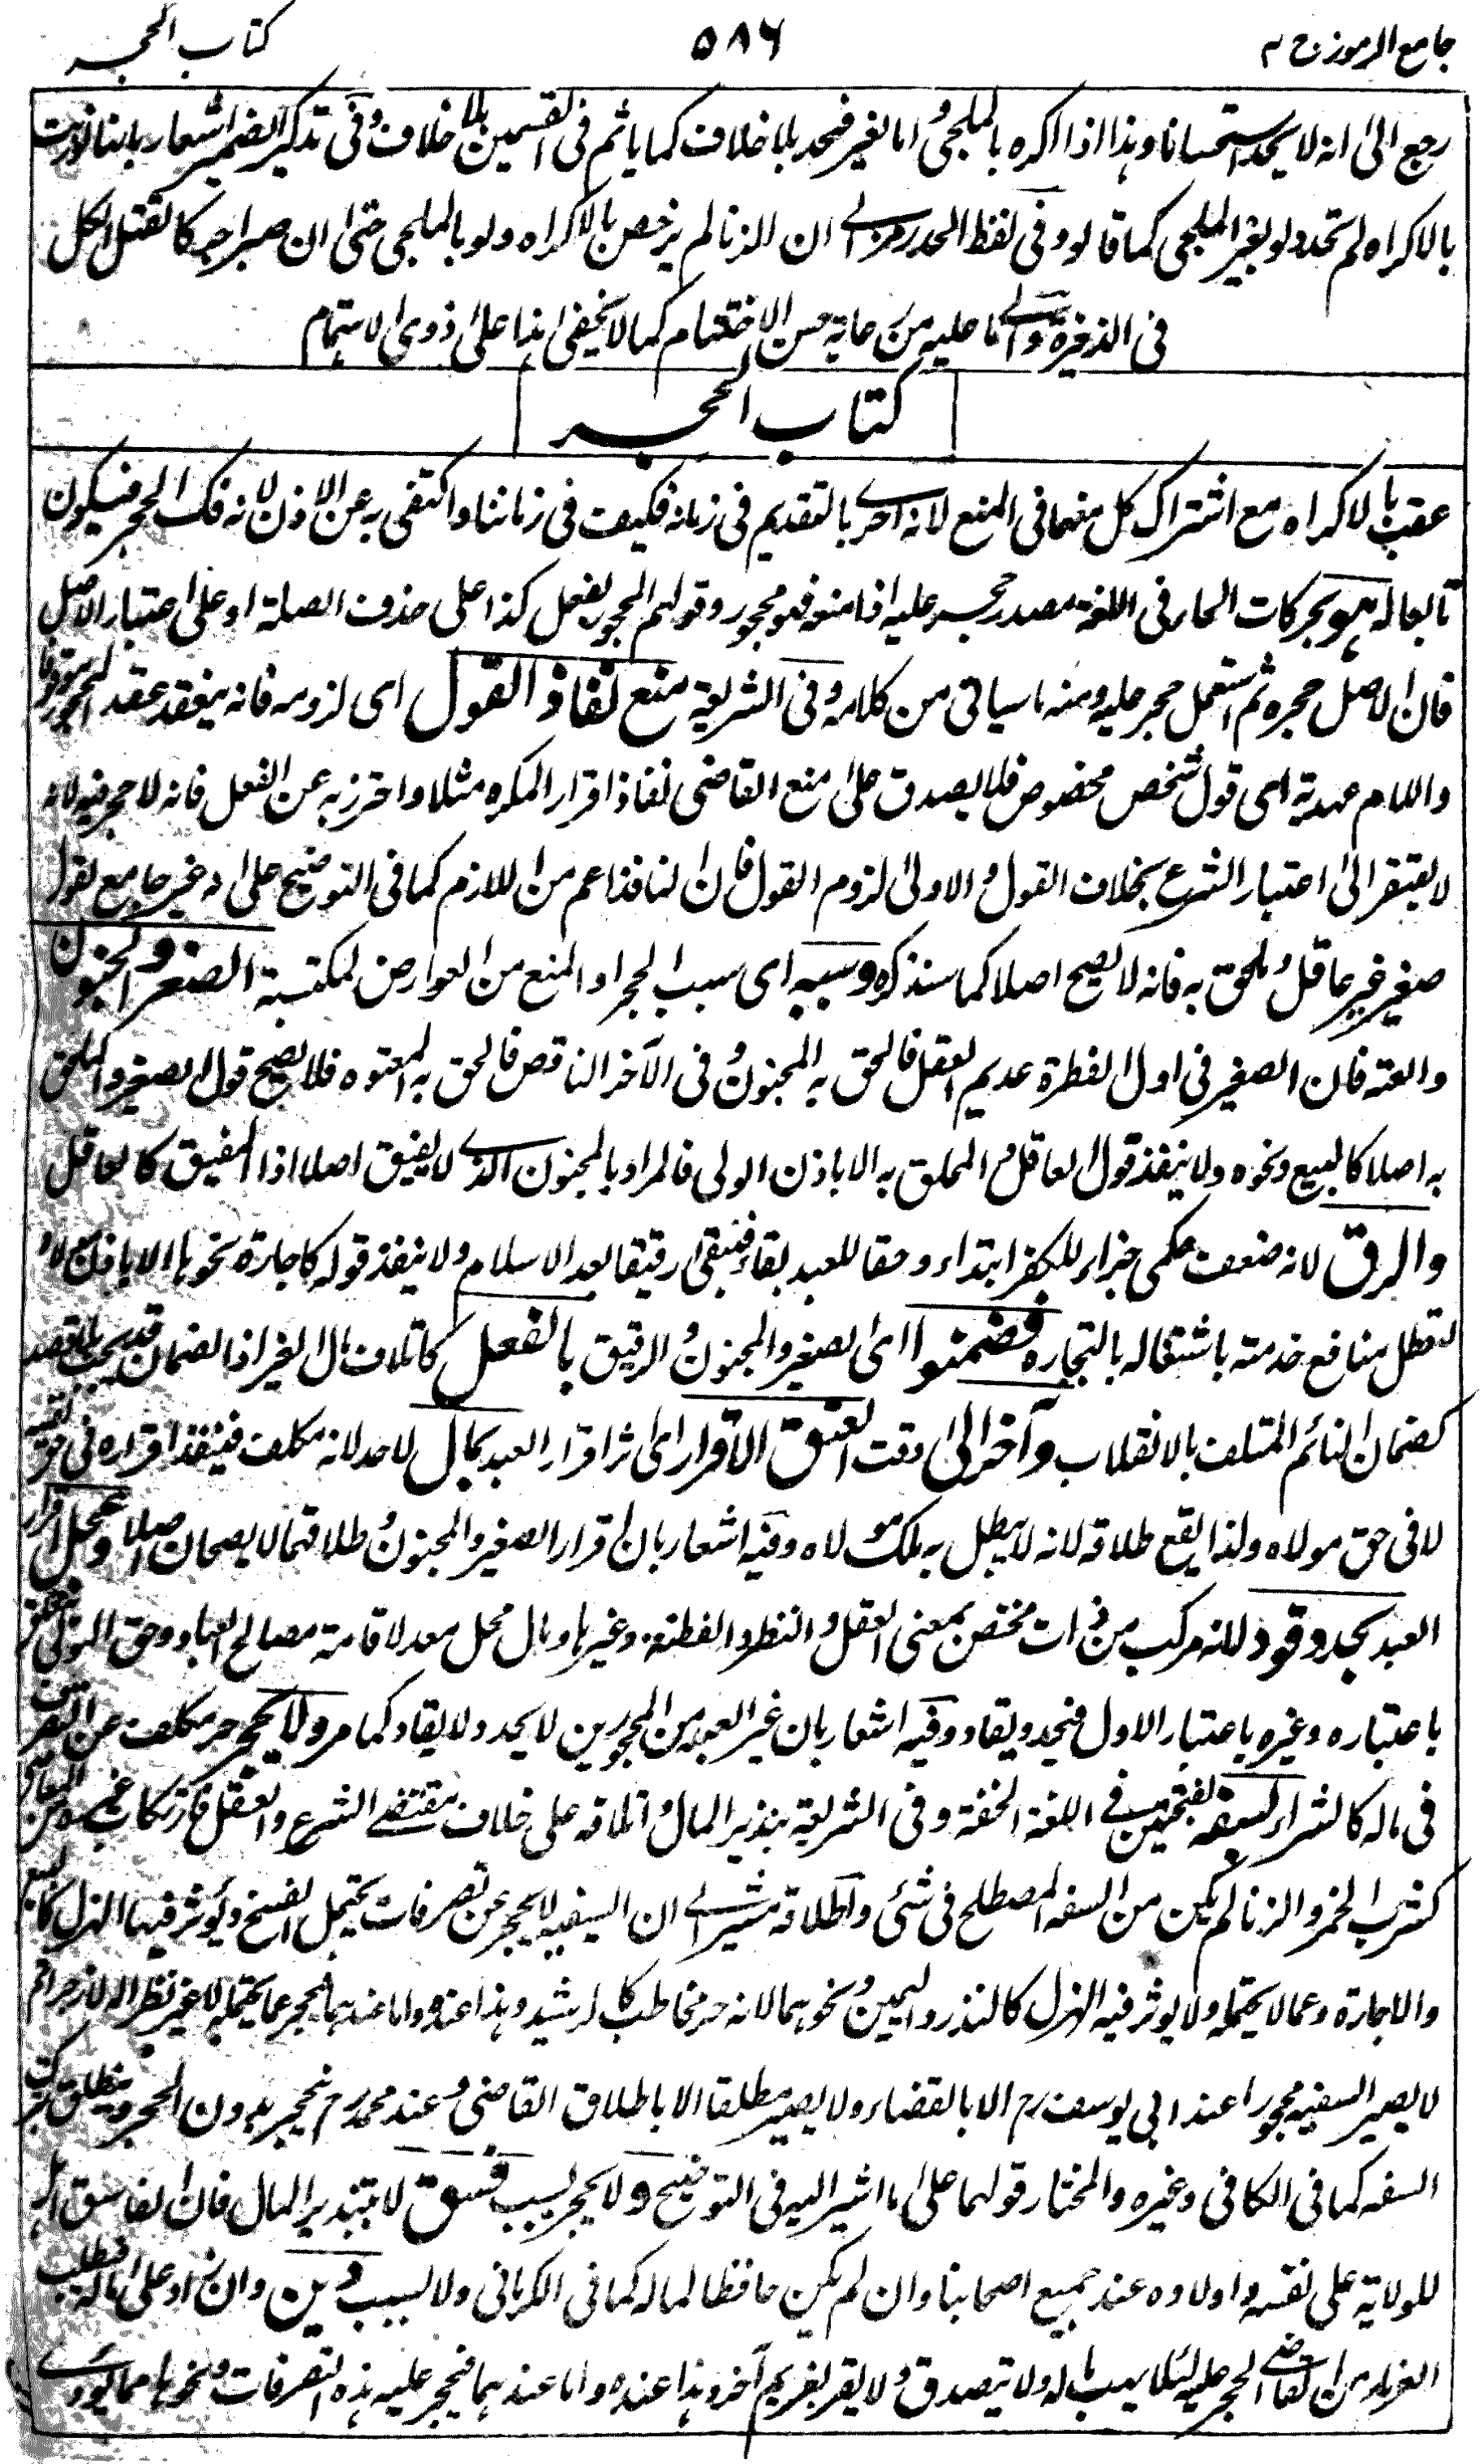 جامع الرموز ج ٢
٥٨٦
كتاب الحجر
رجع الى انه لا يحد استحسانا وهذا اذا اكره بالملجئ واما بغيره فيحد بلا خلاف كما ياثم فى القسمين بلا خلاف وفى تذكير الضمير اشعار بانها لو زنت
بالاكراه لم تحد ولو بغير الملجئ كما قالوا وفى لفظ الحد رمز الى ان الزنا لم يرخص بالاكراه ولو بالملجئ حتى ان صبر اجر كالقتل الكل
فى الذخيرة والى ما عليه من رعاية حسن الاختتام كما لا يخفى هذا على ذوى الاهتمام
كتاب الحجر
عقب بالاكراه مع اشتراك كل منهما فى المنع لانه احرى بالتقديم فى زمانه فكيف فى زماننا واكتفى به عن الاذن لانه فك الحجر فيكون
تابعا له هو بحركات الحاء فى اللغة مصدر حجر عليه اذا منعه فهو محجور وقولهم المحجور يفعل كذا على حذف الصلة او على اعتبار الاصل
فان الاصل حجره ثم استعمل حجر عليه ومنه ما سياتى من كلامه وفى الشريعة منع نفاذ القول اى لزومه فانه ينعقد عقد المحجور موقوفا
واللام عهدية اى قول شخص مخصوص فلا يصدق على منع القاضى نفاذ اقرار المكره مثلا واحترز به عن الفعل فانه لا حجر فيه لانه
لا يفتقر الى اعتبار الشرع بخلاف القول والاولى لزوم القول فان النافذ اعم من اللازم كما فى التوضيح على انه غير جامع لقول
صغير غير عاقل وملحق به فانه لا يصح اصلا كما سنذكره وسببه اى سبب الحجر او المنع من العوارض المكتسبة الصغر والجنون
والعته فان الصغير فى اول الفطرة عديم العقل فالحق به المجنون وفى الآخر الناقص فالحق به المعتوه فلا يصح قول الصغير والملحق
به اصلا كالبيع ونحوه ولا ينفذ قول العاقل والملحق به الا باذن الولى فالمراد بالمجنون الذى لا يفيق اصلا اذ المفيق كالعاقل
والرق لانه ضعف حكمى جزاء للكفر ابتداء وحقا للعبد بقاء فيبقى رقيقا بعد الاسلام ولا ينفذ قوله كاجارة نحوها الا باذن
لتعطل منافع خدمته باشتغاله بالتجارة فضمنوا اى الصغير والمجنون والرقيق بالفعل كاتلاف مال الغير اذ الضمان قد يجب بلا قصد
كضمان النائم المتلف بالانقلاب وآخر الى وقت العتق الاقرار اى اثر اقرار العبد بمال لاحد لانه مكلف فينفذ اقراره فى حق نفسه
لا فى حق مولاه ولذا يقع طلاقه لانه لا يبطل به ملك مولاه وفيه اشعار بان اقرار الصغير والمجنون وطلاقهما لا يصحان اصلا وعجل اقرار
العبد بحد وقود لانه مركب من ذات مختص بمعنى العقل والنظر والفطنة وغيرها ومال محل معد لاقامة مصالح العباد وحق المولى
باعتباره وغيره باعتبار الاول فيحد ويقاد وفيه اشعار بان غير العبد من المحجورين لا يحد ولا يقاد كما مر ولا يحجر حر مكلف عن التصرف
فى ماله كالشراء لسفه بفتحتين فى اللغة الخفة وفى الشريعة تبذير المال واتلافه على خلاف مقتضى الشرع والعقل فارتكاب غيره من المعاصى
كشرب الخمر والزنا لم يكن من السفه المصطلح فى شئ واطلاقه مشير الى ان السفيه لا يحجر عن تصرفات يحتمل الفسخ ويؤثر فيها الهزل كالبيع
والاجارة وعما لا يحتمله ولا يوثر فيه الهزل كالنذر واليمين ونحوهما لانه حر مخاطب كالرشيد وهذا عنده واما عندهما فيحجر عما يحتمله لا غير نظرا له
لا يصير السفيه محجورا عند ابى يوسف رح الا بالقضاء ولا يصير مطلقا الا باطلاق القاضى وعند محمد رح ينحجر بدون الحجر وينطلق
السفه كما فى الكافى وغيره والمختار قولهما على ما اشير اليه فى التوضيح ولا يحجر بسبب فسق لا بتبذير المال فان الفاسق اهل
للولاية على نفسه واولاده عند جميع اصحابنا وان لم يكن حافظا لماله كما فى الكرمانى ولا بسبب دين وان زاد على ماله فطلب
الغرماء من القاضى الحجر عليه لئلا يهب ماله ولا يتصدق ولا يقر لغريم آخر وهذا عنده واما عندهما فيحجر عليه هذه التصرفات ونحوها مما يؤدى